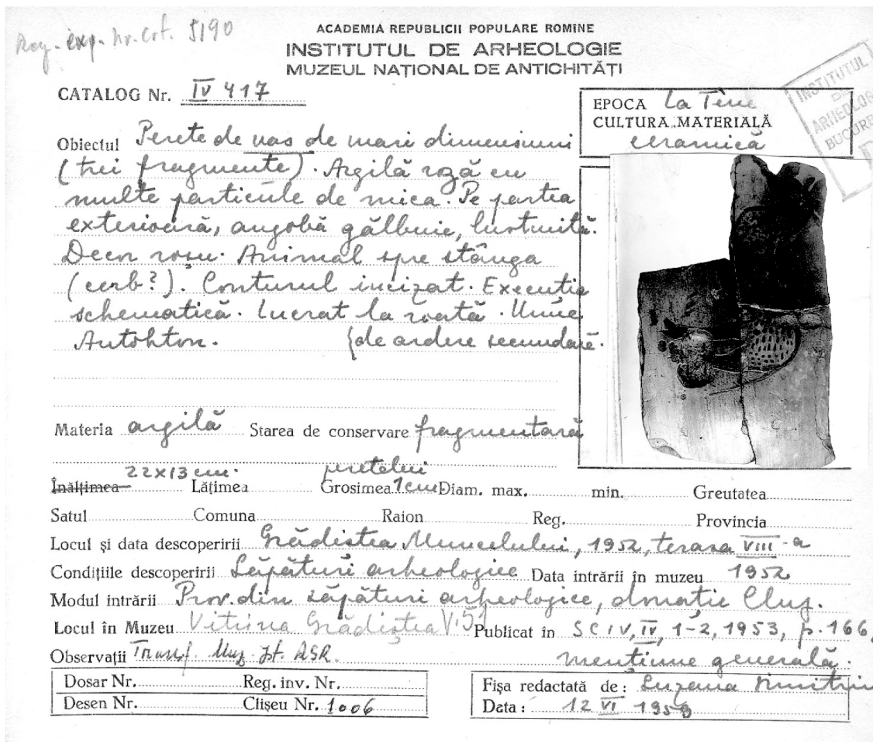 Reg. exp. Nr. Crt. 5190
ACADEMIA REPUBLICII POPULARE ROMÎNE
INSTITUTUL DE ARHEOLOGIE
MUZEUL NAȚIONAL DE ANTICHITĂȚI
CATALOG Nr. IV 417
EPOCA La Tène
CULTURA MATERIALĂ
ceramică
INSTITUTUL
DE
ARHEOLOG
BUCUR
Obiectul Perete de vas de mari dimensiuni
(trei fragmente). Argilă roză cu
multe particule de mica. Pe partea
exterioară, angobă gălbuie, lustruită.
Decor roșu. Animal spre stânga
(cerb?). Conturul incizat. Execuție
schematică. Lucrat la roată. Urme
Autohton. {de ardere secundară.
Materia argilă Starea de conservare fragmentară
22x13 cm. peretelui
Înălțimea Lățimea Grosimea 1cm Diam. max. min. Greutatea
Satul Comuna Raion Reg. Provincia
Locul și data descoperirii Grădiștea Muncelului, 1952, terasa VIII-a
Condițiile descoperirii Săpături arheologice Data intrării în muzeu 1952
Modul intrării Prov. din săpături arheologice, donație Cluj.
Locul în Muzeu Vitrina Grădiștea V.5 Publicat în SCIV, IV, 1-2, 1953, p. 166,
Observații Transf. Muz. Ist. RSR. mențiune generală.
Dosar Nr. Reg. inv. Nr.
Desen Nr. Clișeu Nr. 1006
Fișa redactată de: Suzana Dimitriu
Data: 12 VI 1959